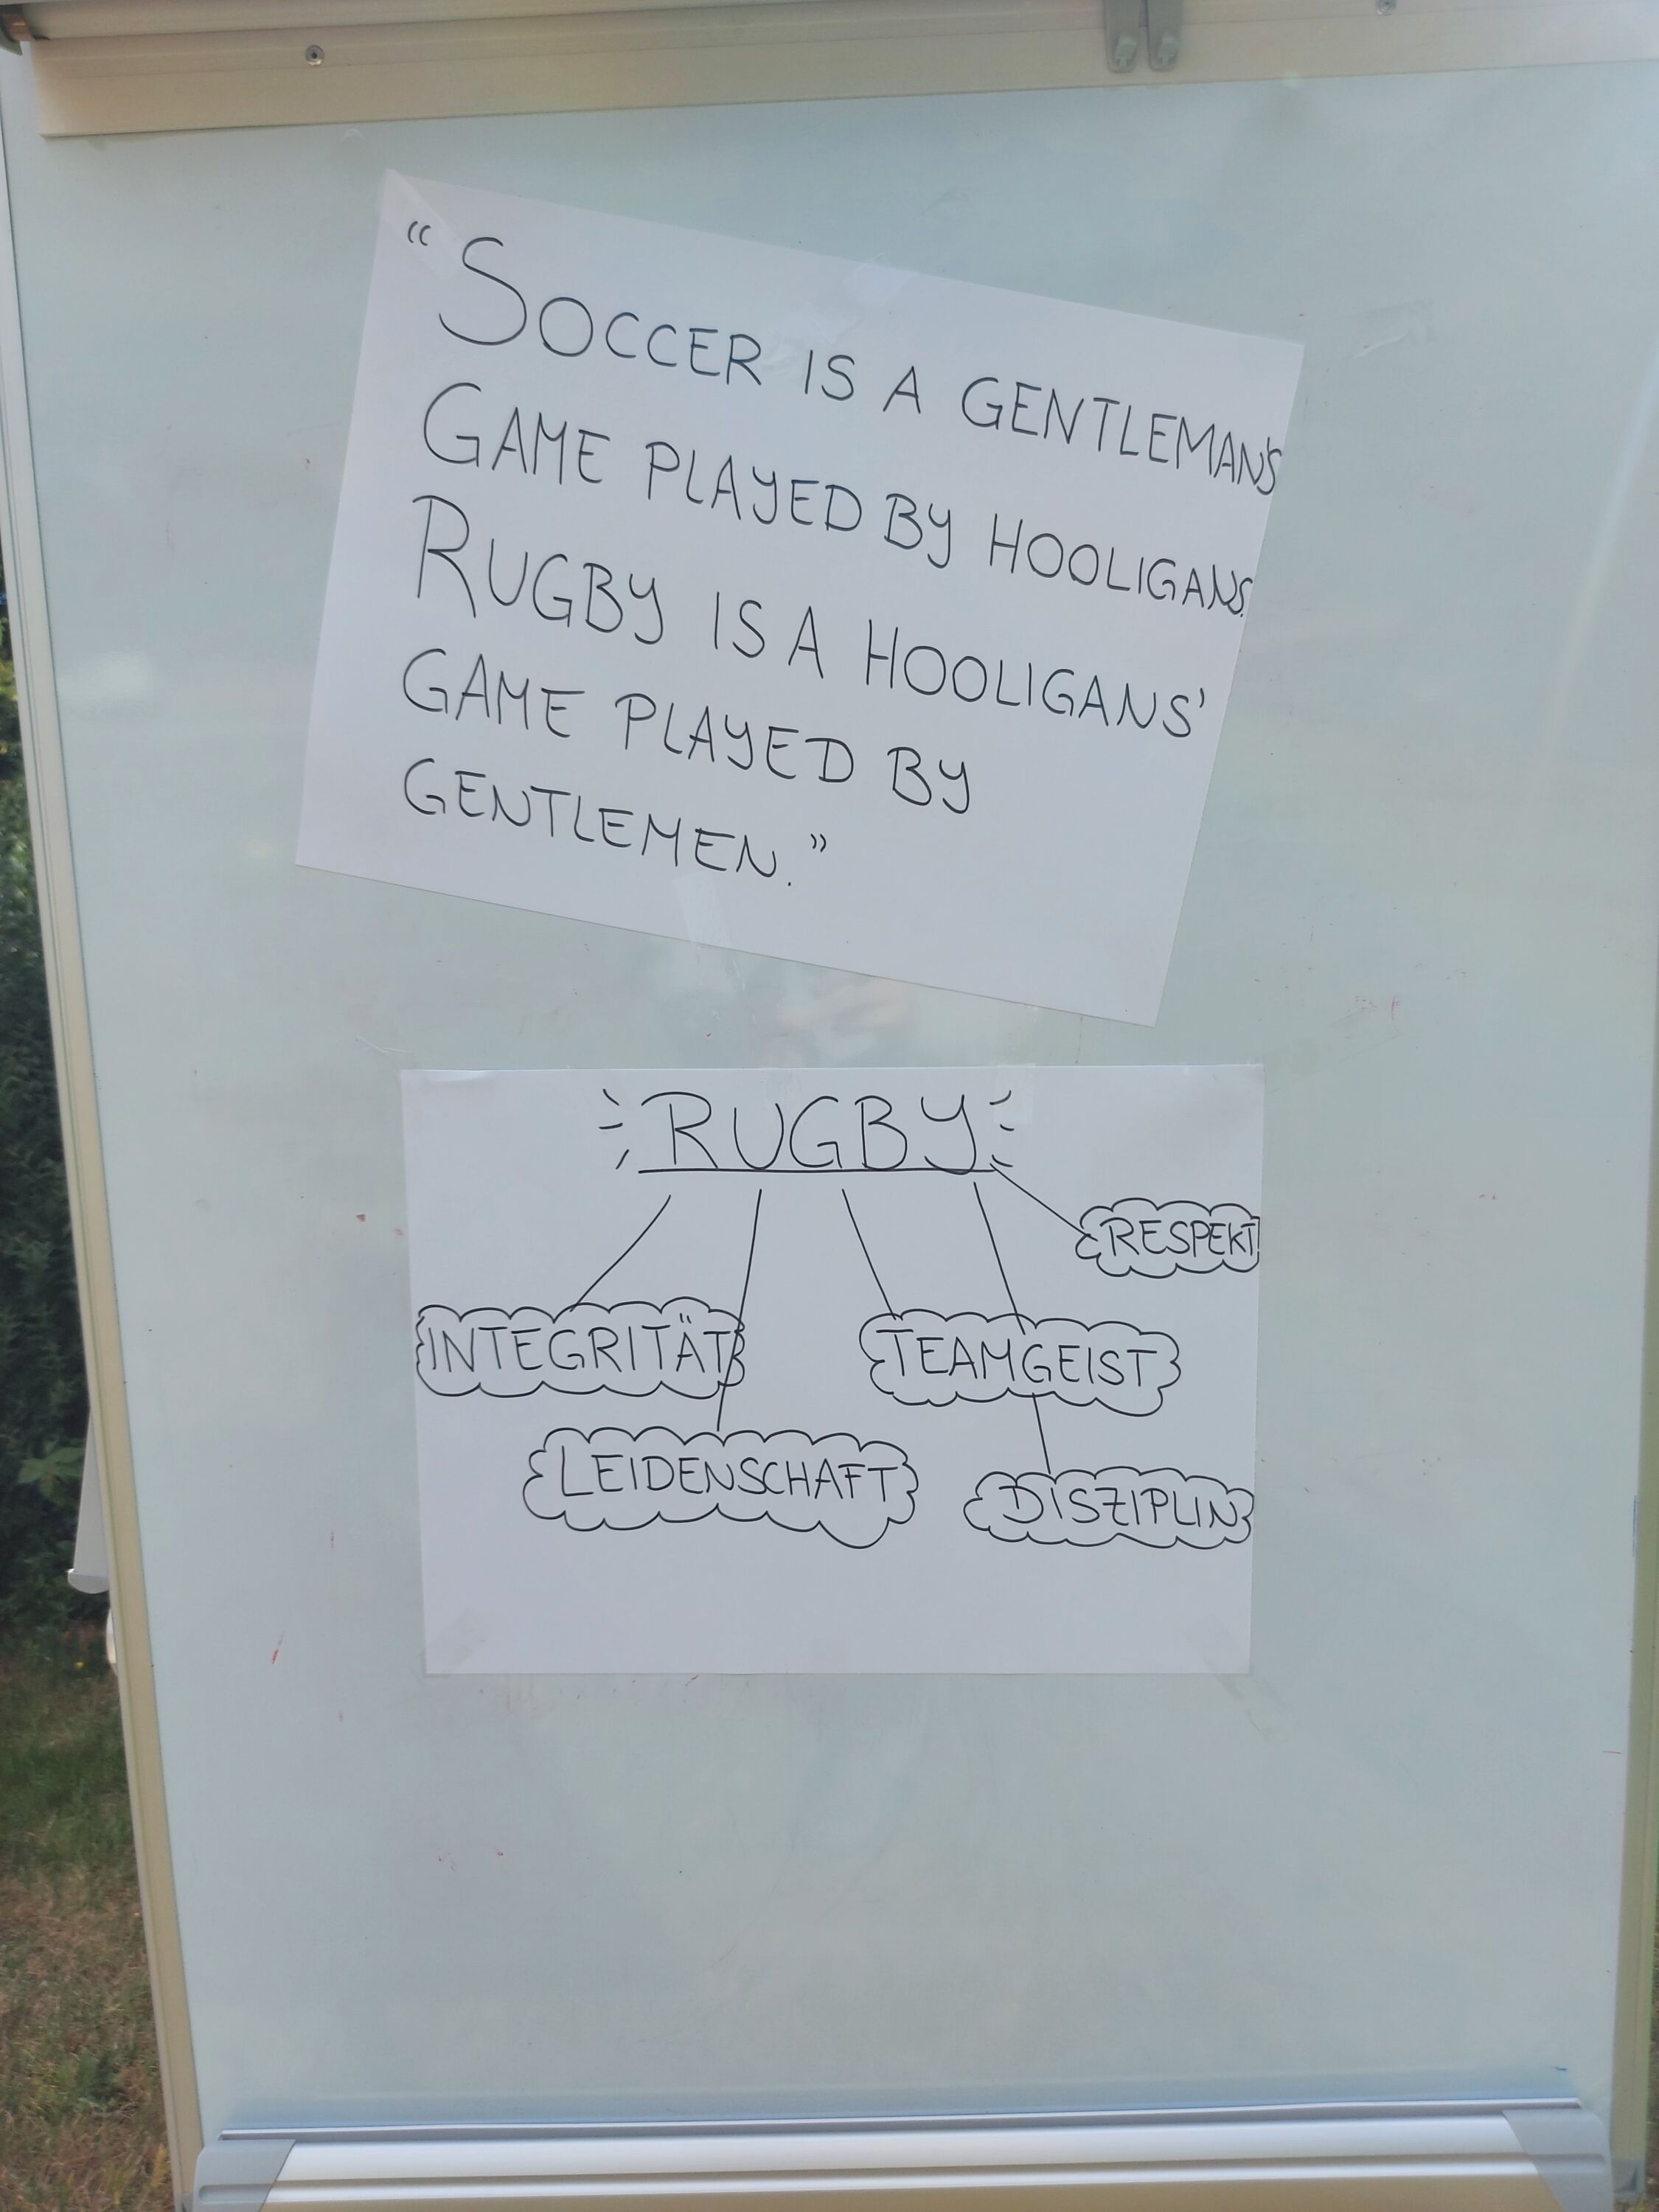 “SOCCER IS A GENTLEMAN'S
GAME PLAYED BY HOOLIGANS.
RUGBY IS A HOOLIGANS'
GAME PLAYED BY
GENTLEMEN.”
RUGBY
RESPEKT
INTEGRITÄT
TEAMGEIST
LEIDENSCHAFT
DISZIPLIN